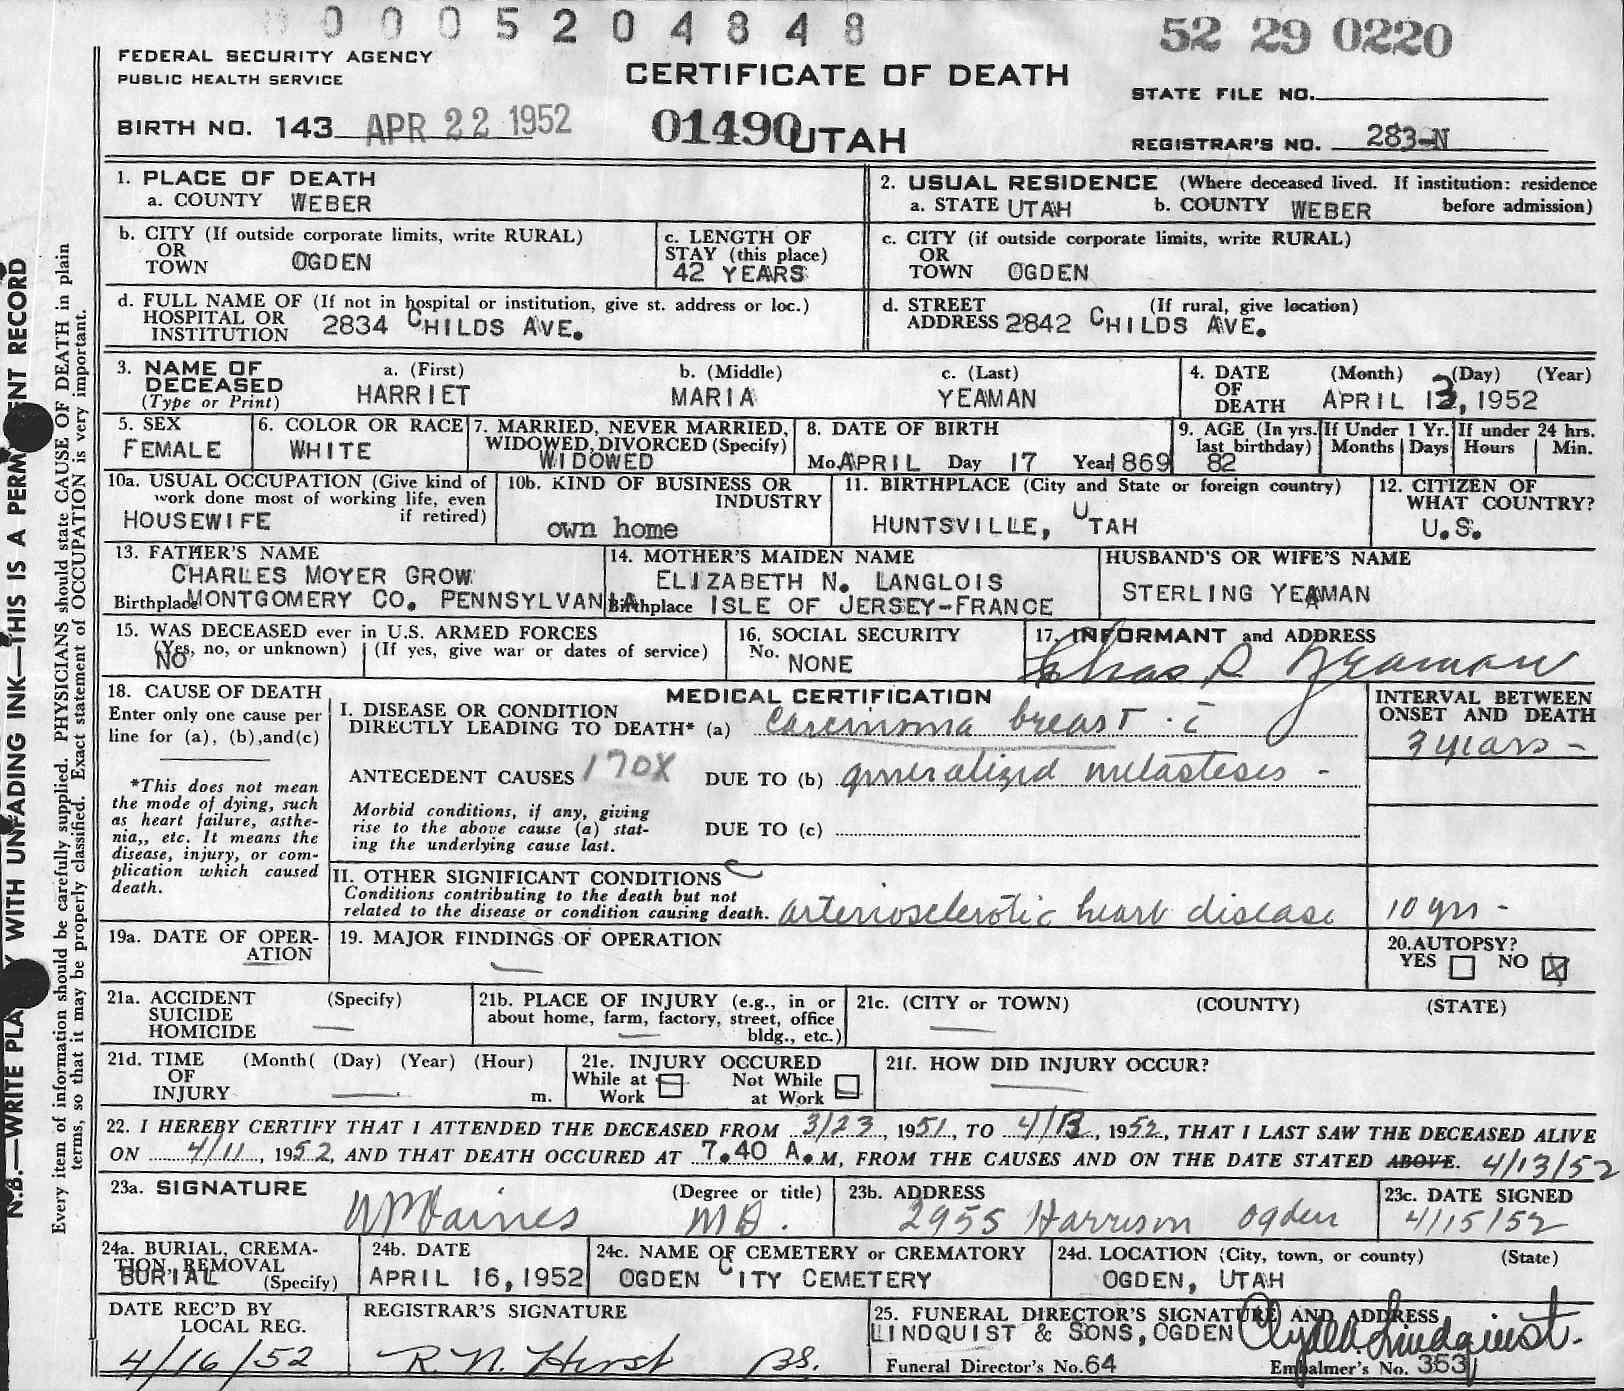 0005204848
52 29 0220
FEDERAL SECURITY AGENCY
PUBLIC HEALTH SERVICE
CERTIFICATE OF DEATH
STATE FILE NO.
BIRTH NO. 143 APR 22 1952
01490 UTAH
REGISTRAR'S NO. 283-N
1. PLACE OF DEATH
a. COUNTY WEBER
2. USUAL RESIDENCE (Where deceased lived. If institution: residence before admission)
a. STATE UTAH b. COUNTY WEBER
b. CITY (If outside corporate limits, write RURAL)
OR
TOWN OGDEN
c. LENGTH OF
STAY (this place)
42 YEARS
c. CITY (if outside corporate limits, write RURAL)
OR
TOWN OGDEN
d. FULL NAME OF (If not in hospital or institution, give st. address or loc.)
HOSPITAL OR
INSTITUTION 2834 CHILDS AVE.
d. STREET (If rural, give location)
ADDRESS 2842 CHILDS AVE.
3. NAME OF
DECEASED
(Type or Print)
a. (First)
HARRIET
b. (Middle)
MARIA
c. (Last)
YEAMAN
4. DATE (Month) (Day) (Year)
OF
DEATH APRIL 13, 1952
5. SEX
FEMALE
6. COLOR OR RACE
WHITE
7. MARRIED, NEVER MARRIED,
WIDOWED, DIVORCED (Specify)
WIDOWED
8. DATE OF BIRTH
Mo. APRIL Day 17 Year 1869
9. AGE (In yrs.
last birthday)
82
If Under 1 Yr.
Months Days
If under 24 hrs.
Hours Min.
10a. USUAL OCCUPATION (Give kind of
work done most of working life, even
if retired)
HOUSEWIFE
10b. KIND OF BUSINESS OR
INDUSTRY
own home
11. BIRTHPLACE (City and State or foreign country)
HUNTSVILLE, UTAH
12. CITIZEN OF
WHAT COUNTRY?
U.S.
13. FATHER'S NAME
CHARLES MOYER GROW
Birthplace MONTGOMERY CO. PENNSYLVANIA
14. MOTHER'S MAIDEN NAME
ELIZABETH N. LANGLOIS
Birthplace ISLE OF JERSEY-FRANCE
HUSBAND'S OR WIFE'S NAME
STERLING YEAMAN
15. WAS DECEASED ever in U.S. ARMED FORCES
(Yes, no, or unknown) (If yes, give war or dates of service)
NO
16. SOCIAL SECURITY
No. NONE
17. INFORMANT and ADDRESS
Chas R Yeaman
18. CAUSE OF DEATH
Enter only one cause per
line for (a), (b), and (c)
*This does not mean
the mode of dying, such
as heart failure, asthe-
nia,, etc. It means the
disease, injury, or com-
plication which caused
death.
MEDICAL CERTIFICATION
I. DISEASE OR CONDITION
DIRECTLY LEADING TO DEATH* (a) carcinoma breast c̄
ANTECEDENT CAUSES 170X DUE TO (b) generalized metasteses -
Morbid conditions, if any, giving
rise to the above cause (a) stat-
ing the underlying cause last.
DUE TO (c)
INTERVAL BETWEEN
ONSET AND DEATH
3 years -
II. OTHER SIGNIFICANT CONDITIONS
Conditions contributing to the death but not
related to the disease or condition causing death. arteriosclerotic heart disease 10 yrs -
19a. DATE OF OPER-
ATION
19. MAJOR FINDINGS OF OPERATION
—
20. AUTOPSY?
YES NO X
21a. ACCIDENT (Specify)
SUICIDE
HOMICIDE —
21b. PLACE OF INJURY (e.g., in or
about home, farm, factory, street, office
bldg., etc.)
—
21c. (CITY or TOWN) (COUNTY) (STATE)
—
21d. TIME (Month( (Day) (Year) (Hour)
OF
INJURY — m.
21e. INJURY OCCURED
While at Work Not While at Work
21f. HOW DID INJURY OCCUR?
—
22. I HEREBY CERTIFY THAT I ATTENDED THE DECEASED FROM 3/23, 1951, TO 4/13, 1952, THAT I LAST SAW THE DECEASED ALIVE
ON 4/11, 1952, AND THAT DEATH OCCURED AT 7.40 A.M, FROM THE CAUSES AND ON THE DATE STATED ABOVE. 4/13/52
23a. SIGNATURE (Degree or title)
MD.
23b. ADDRESS
2955 Harrison Ogden
23c. DATE SIGNED
4/15/52
24a. BURIAL, CREMA-
TION, REMOVAL
(Specify)
BURIAL
24b. DATE
APRIL 16, 1952
24c. NAME OF CEMETERY or CREMATORY
OGDEN CITY CEMETERY
24d. LOCATION (City, town, or county) (State)
OGDEN, UTAH
DATE REC'D BY
LOCAL REG.
4/16/52
REGISTRAR'S SIGNATURE
R. N. Hirst BS.
25. FUNERAL DIRECTOR'S SIGNATURE AND ADDRESS
LINDQUIST & SONS, OGDEN Clyde Lindquist.
Funeral Director's No. 64 Embalmer's No. 353
N.B.—WRITE PLA Y WITH UNFADING INK—THIS IS A PERM ENT RECORD
Every item of information should be carefully supplied. PHYSICIANS should state CAUSE OF DEATH in plain
terms, so that it may be properly classified. Exact statement of OCCUPATION is very important.